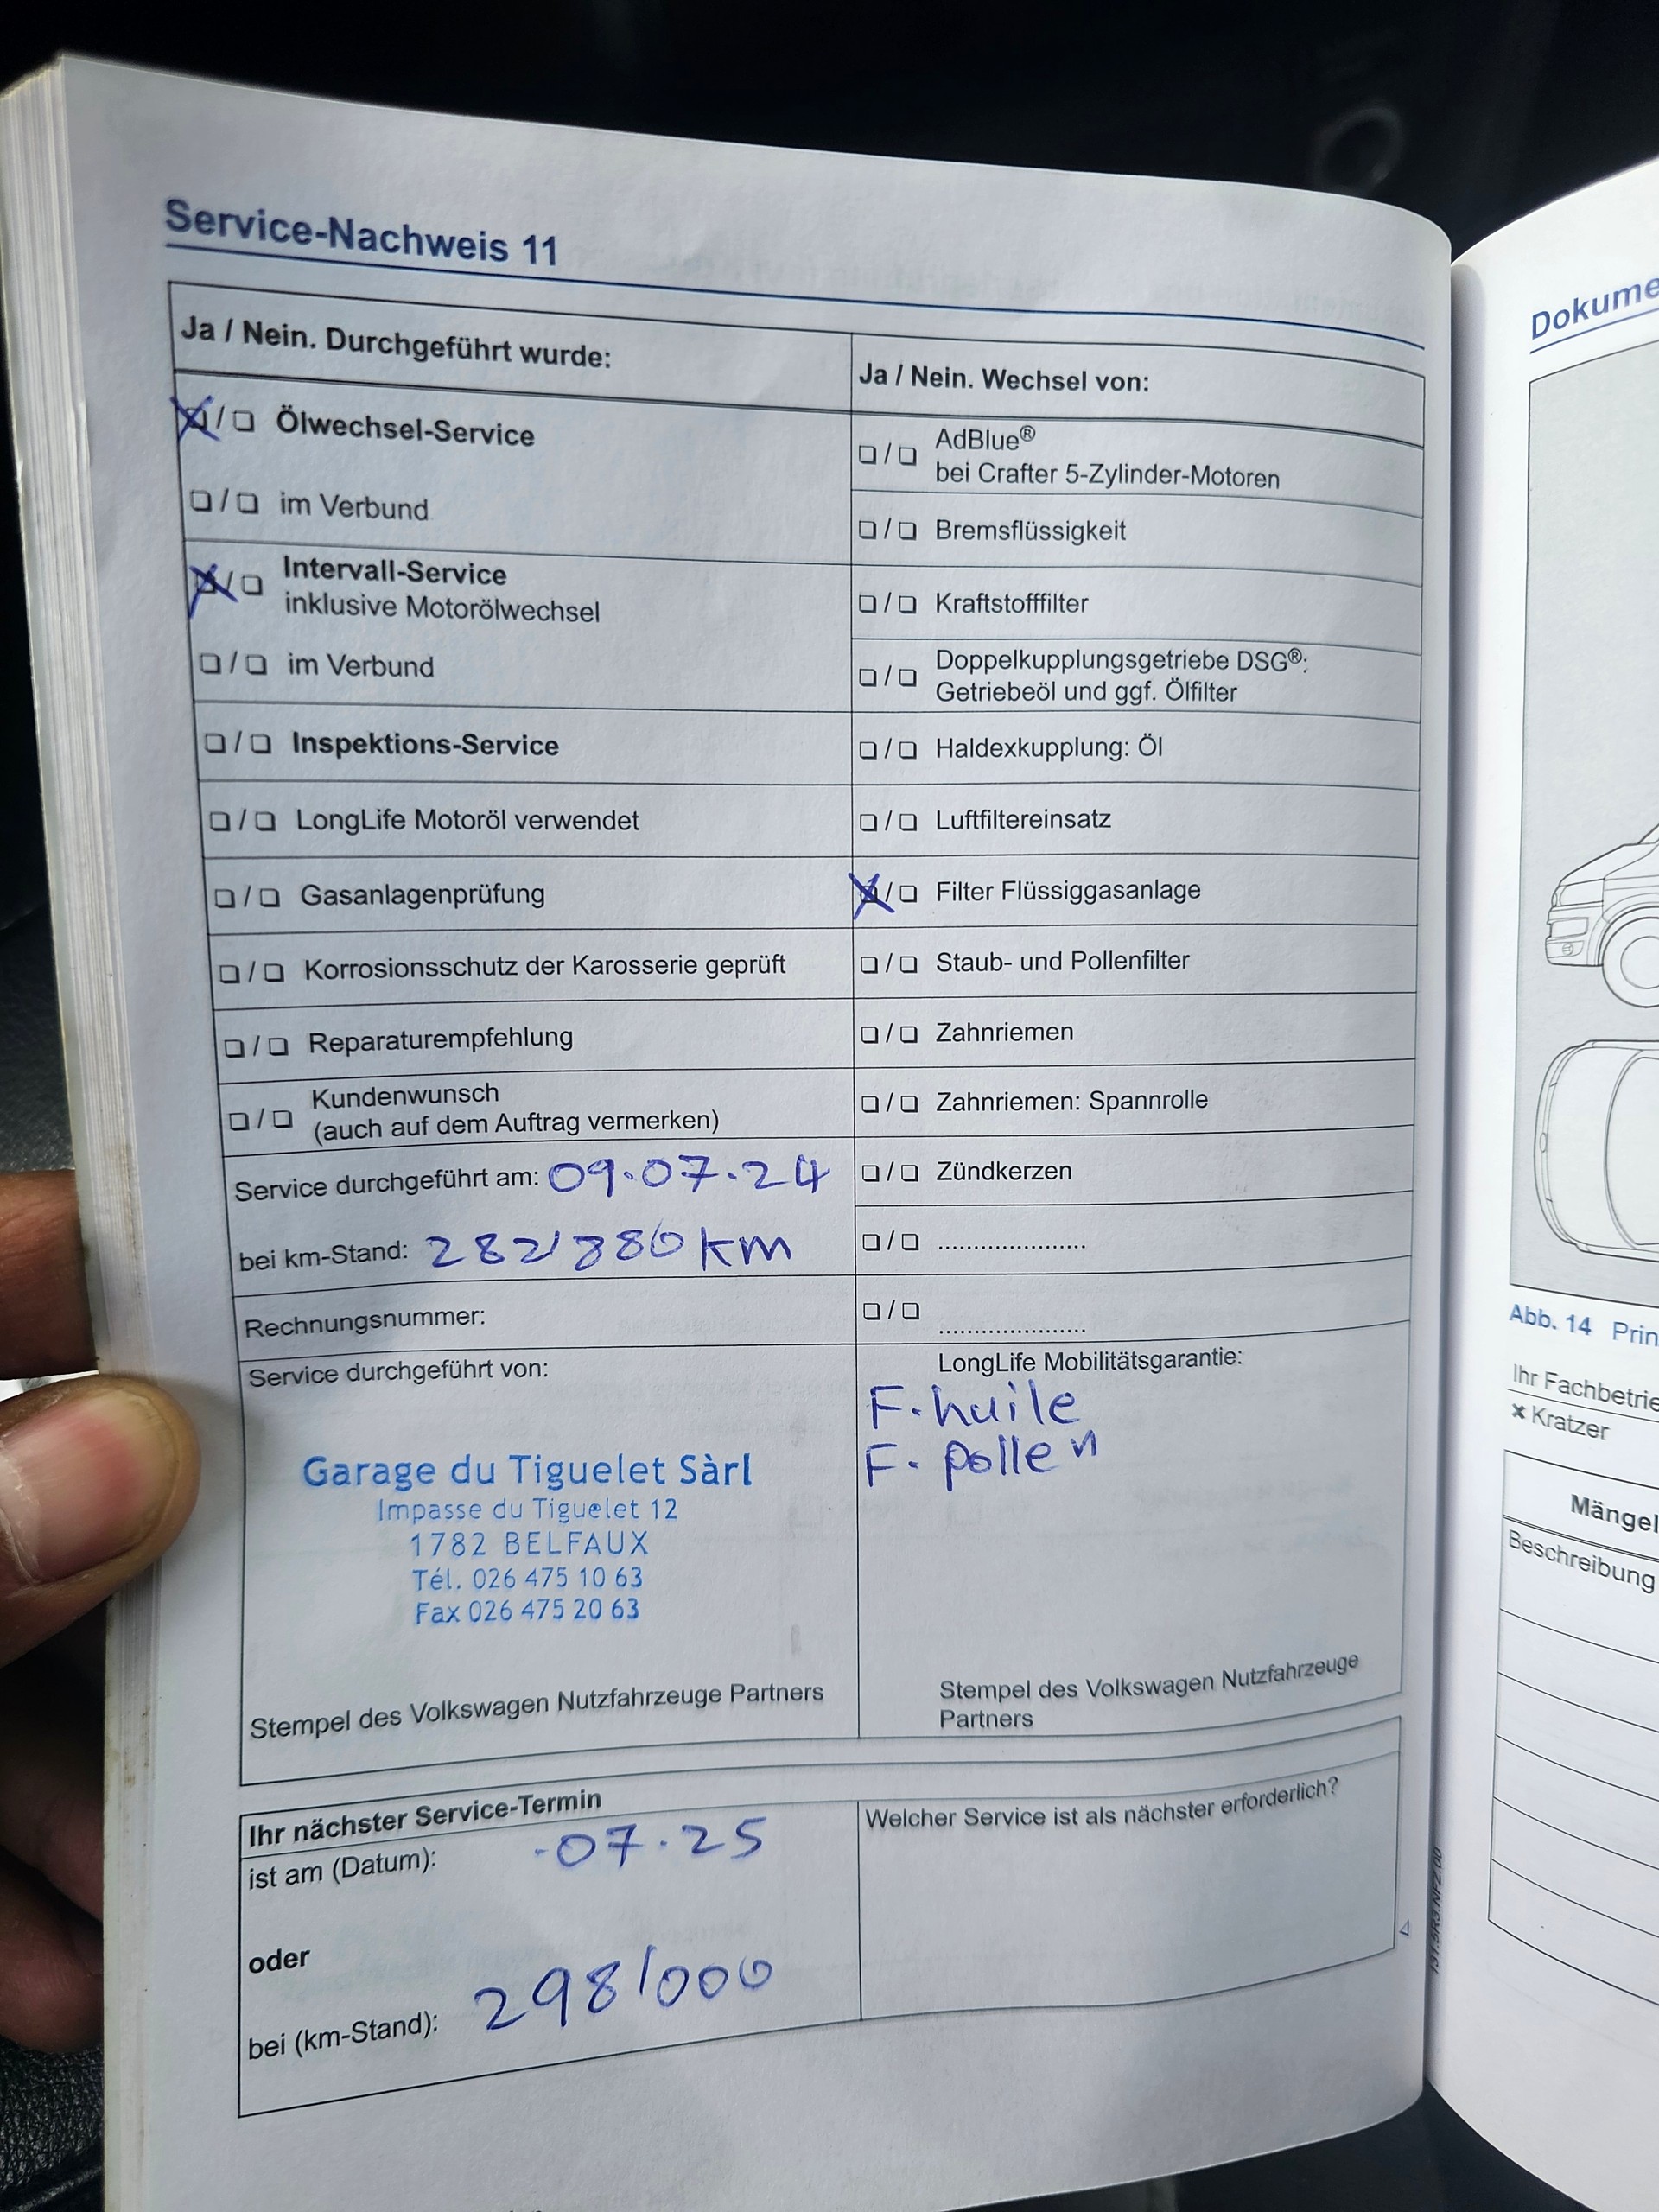 Service-Nachweis 11
Ja / Nein. Durchgeführt wurde:
Ölwechsel-Service
im Verbund
Intervall-Service
inklusive Motorölwechsel
im Verbund
Inspektions-Service
LongLife Motoröl verwendet
Gasanlagenprüfung
Korrosionsschutz der Karosserie geprüft
Reparaturempfehlung
Kundenwunsch
(auch auf dem Auftrag vermerken)
Service durchgeführt am: 09.07.24
bei km-Stand: 282'880 km
Rechnungsnummer:
Service durchgeführt von:
Garage du Tiguelet Sàrl
Impasse du Tiguelet 12
1782 BELFAUX
Tél. 026 475 10 63
Fax 026 475 20 63
Stempel des Volkswagen Nutzfahrzeuge Partners
Ja / Nein. Wechsel von:
AdBlue®
bei Crafter 5-Zylinder-Motoren
Bremsflüssigkeit
Kraftstofffilter
Doppelkupplungsgetriebe DSG®:
Getriebeöl und ggf. Ölfilter
Haldexkupplung: Öl
Luftfiltereinsatz
Filter Flüssiggasanlage
Staub- und Pollenfilter
Zahnriemen
Zahnriemen: Spannrolle
Zündkerzen
LongLife Mobilitätsgarantie:
F. huile
F. pollen
Stempel des Volkswagen Nutzfahrzeuge
Partners
Ihr nächster Service-Termin
ist am (Datum): .07.25
oder
bei (km-Stand): 298'000
Welcher Service ist als nächster erforderlich?
Dokume
Abb. 14 Prin
Ihr Fachbetrie
× Kratzer
Mängel
Beschreibung